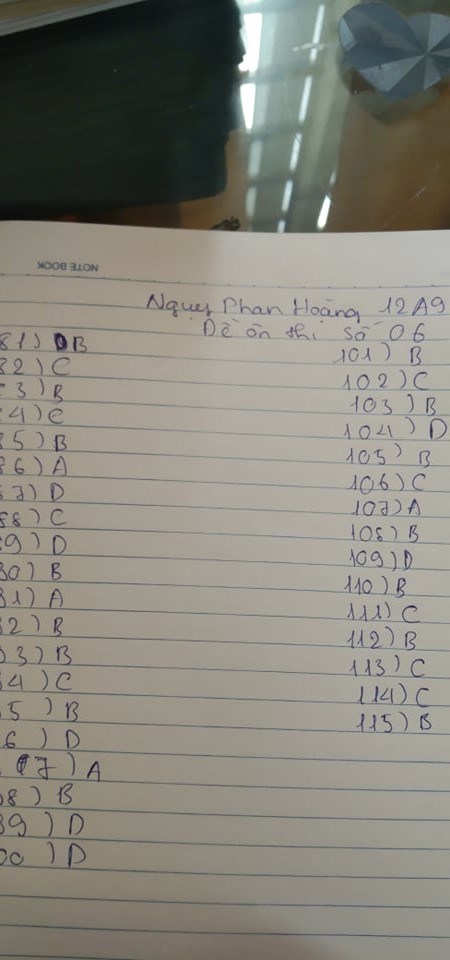 NOTE BOOK
Nguy Phan Hoàng 12A9
Đề ôn thi số 06
81) B
82) C
83) B
84) C
85) B
86) A
87) D
88) C
89) D
90) B
91) A
92) B
93) B
94) C
95) B
96) D
97) A
98) B
99) D
100) D
101) B
102) C
103) B
104) D
105) B
106) C
107) A
108) B
109) D
110) B
111) C
112) B
113) C
114) C
115) B